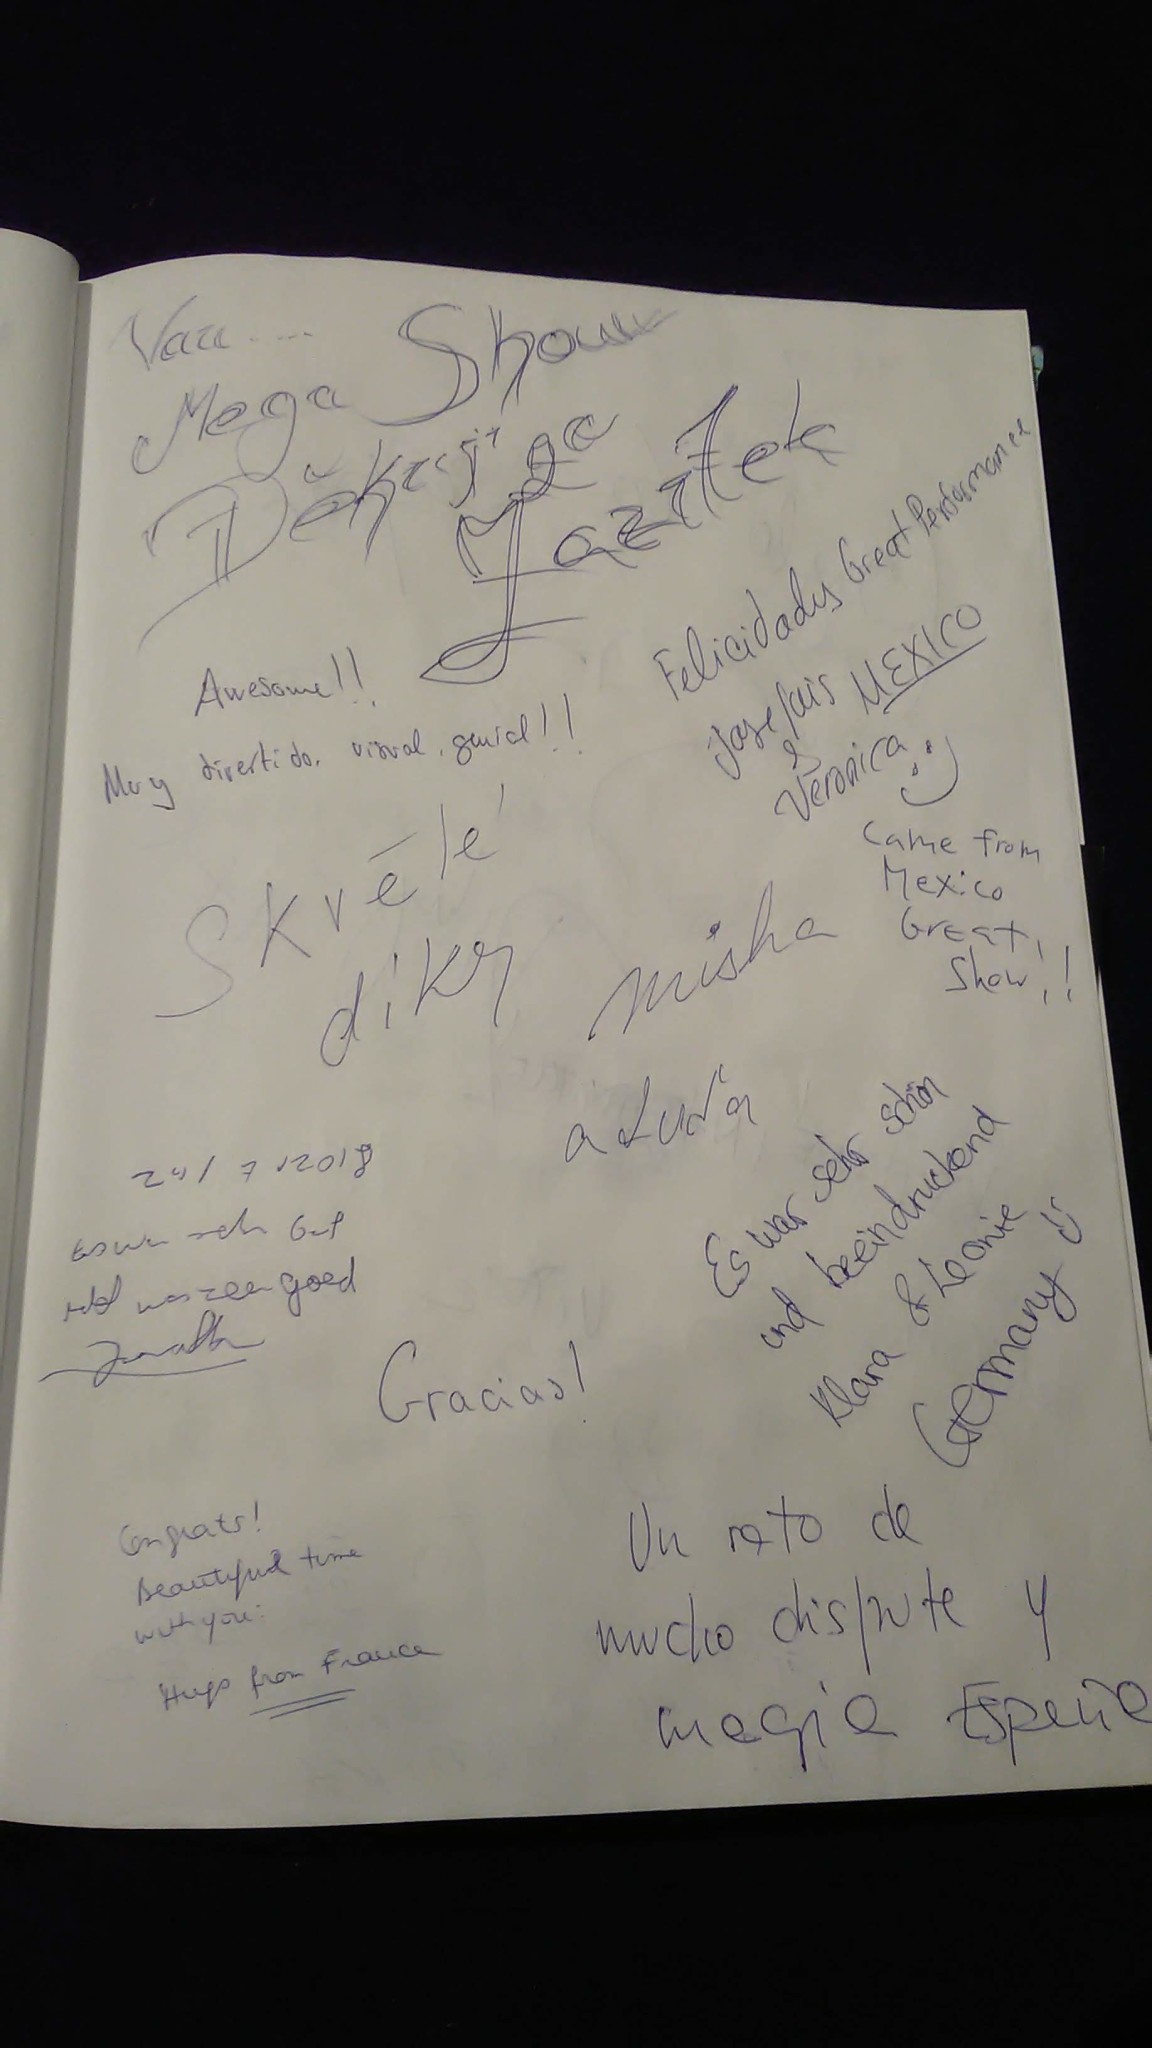 Vau....
Mega Show
Děkuji za
zazitek
Felicidades Great Performance
Jose luis MEXICO
&
Veronica
Awesome!!
Muy divertido, visual, genial!!
Came from
Mexico
Great
Show!!
Skvělé
díky
misha
a Luďa
24/7/2018
Es war sehr Gut
Het was zeer goed
Es war sehr schön
und beeindruckend
Klara & Leonie
Germany
Gracias!
Congrats!
Beautiful time
with you.
Hugs from France
Un rato de
mucho disfrute y
magia España